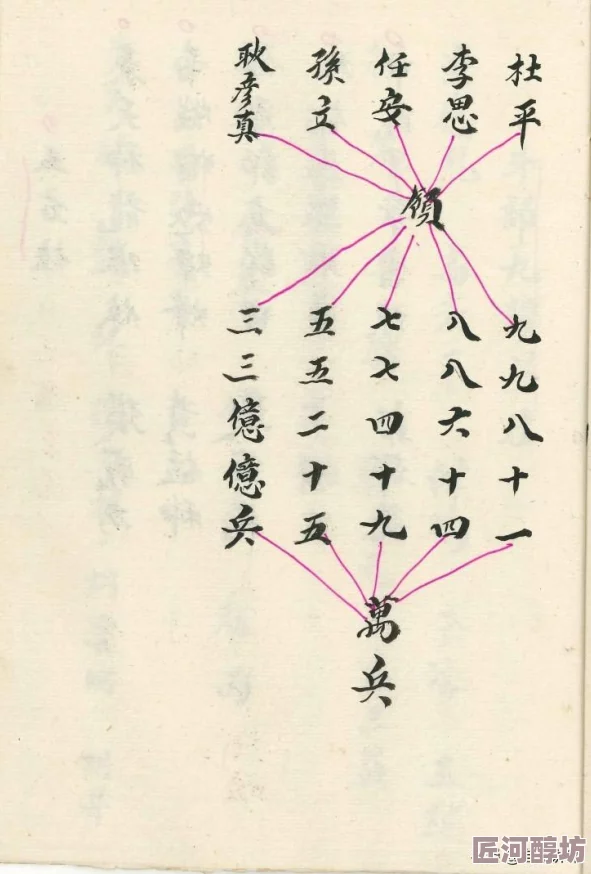 杜平
李思
任安
孫立
耿彦真
領
九九八十一
八八六十四
七七四十九
五五二十五
三三億億兵
萬兵
匠河醇坊